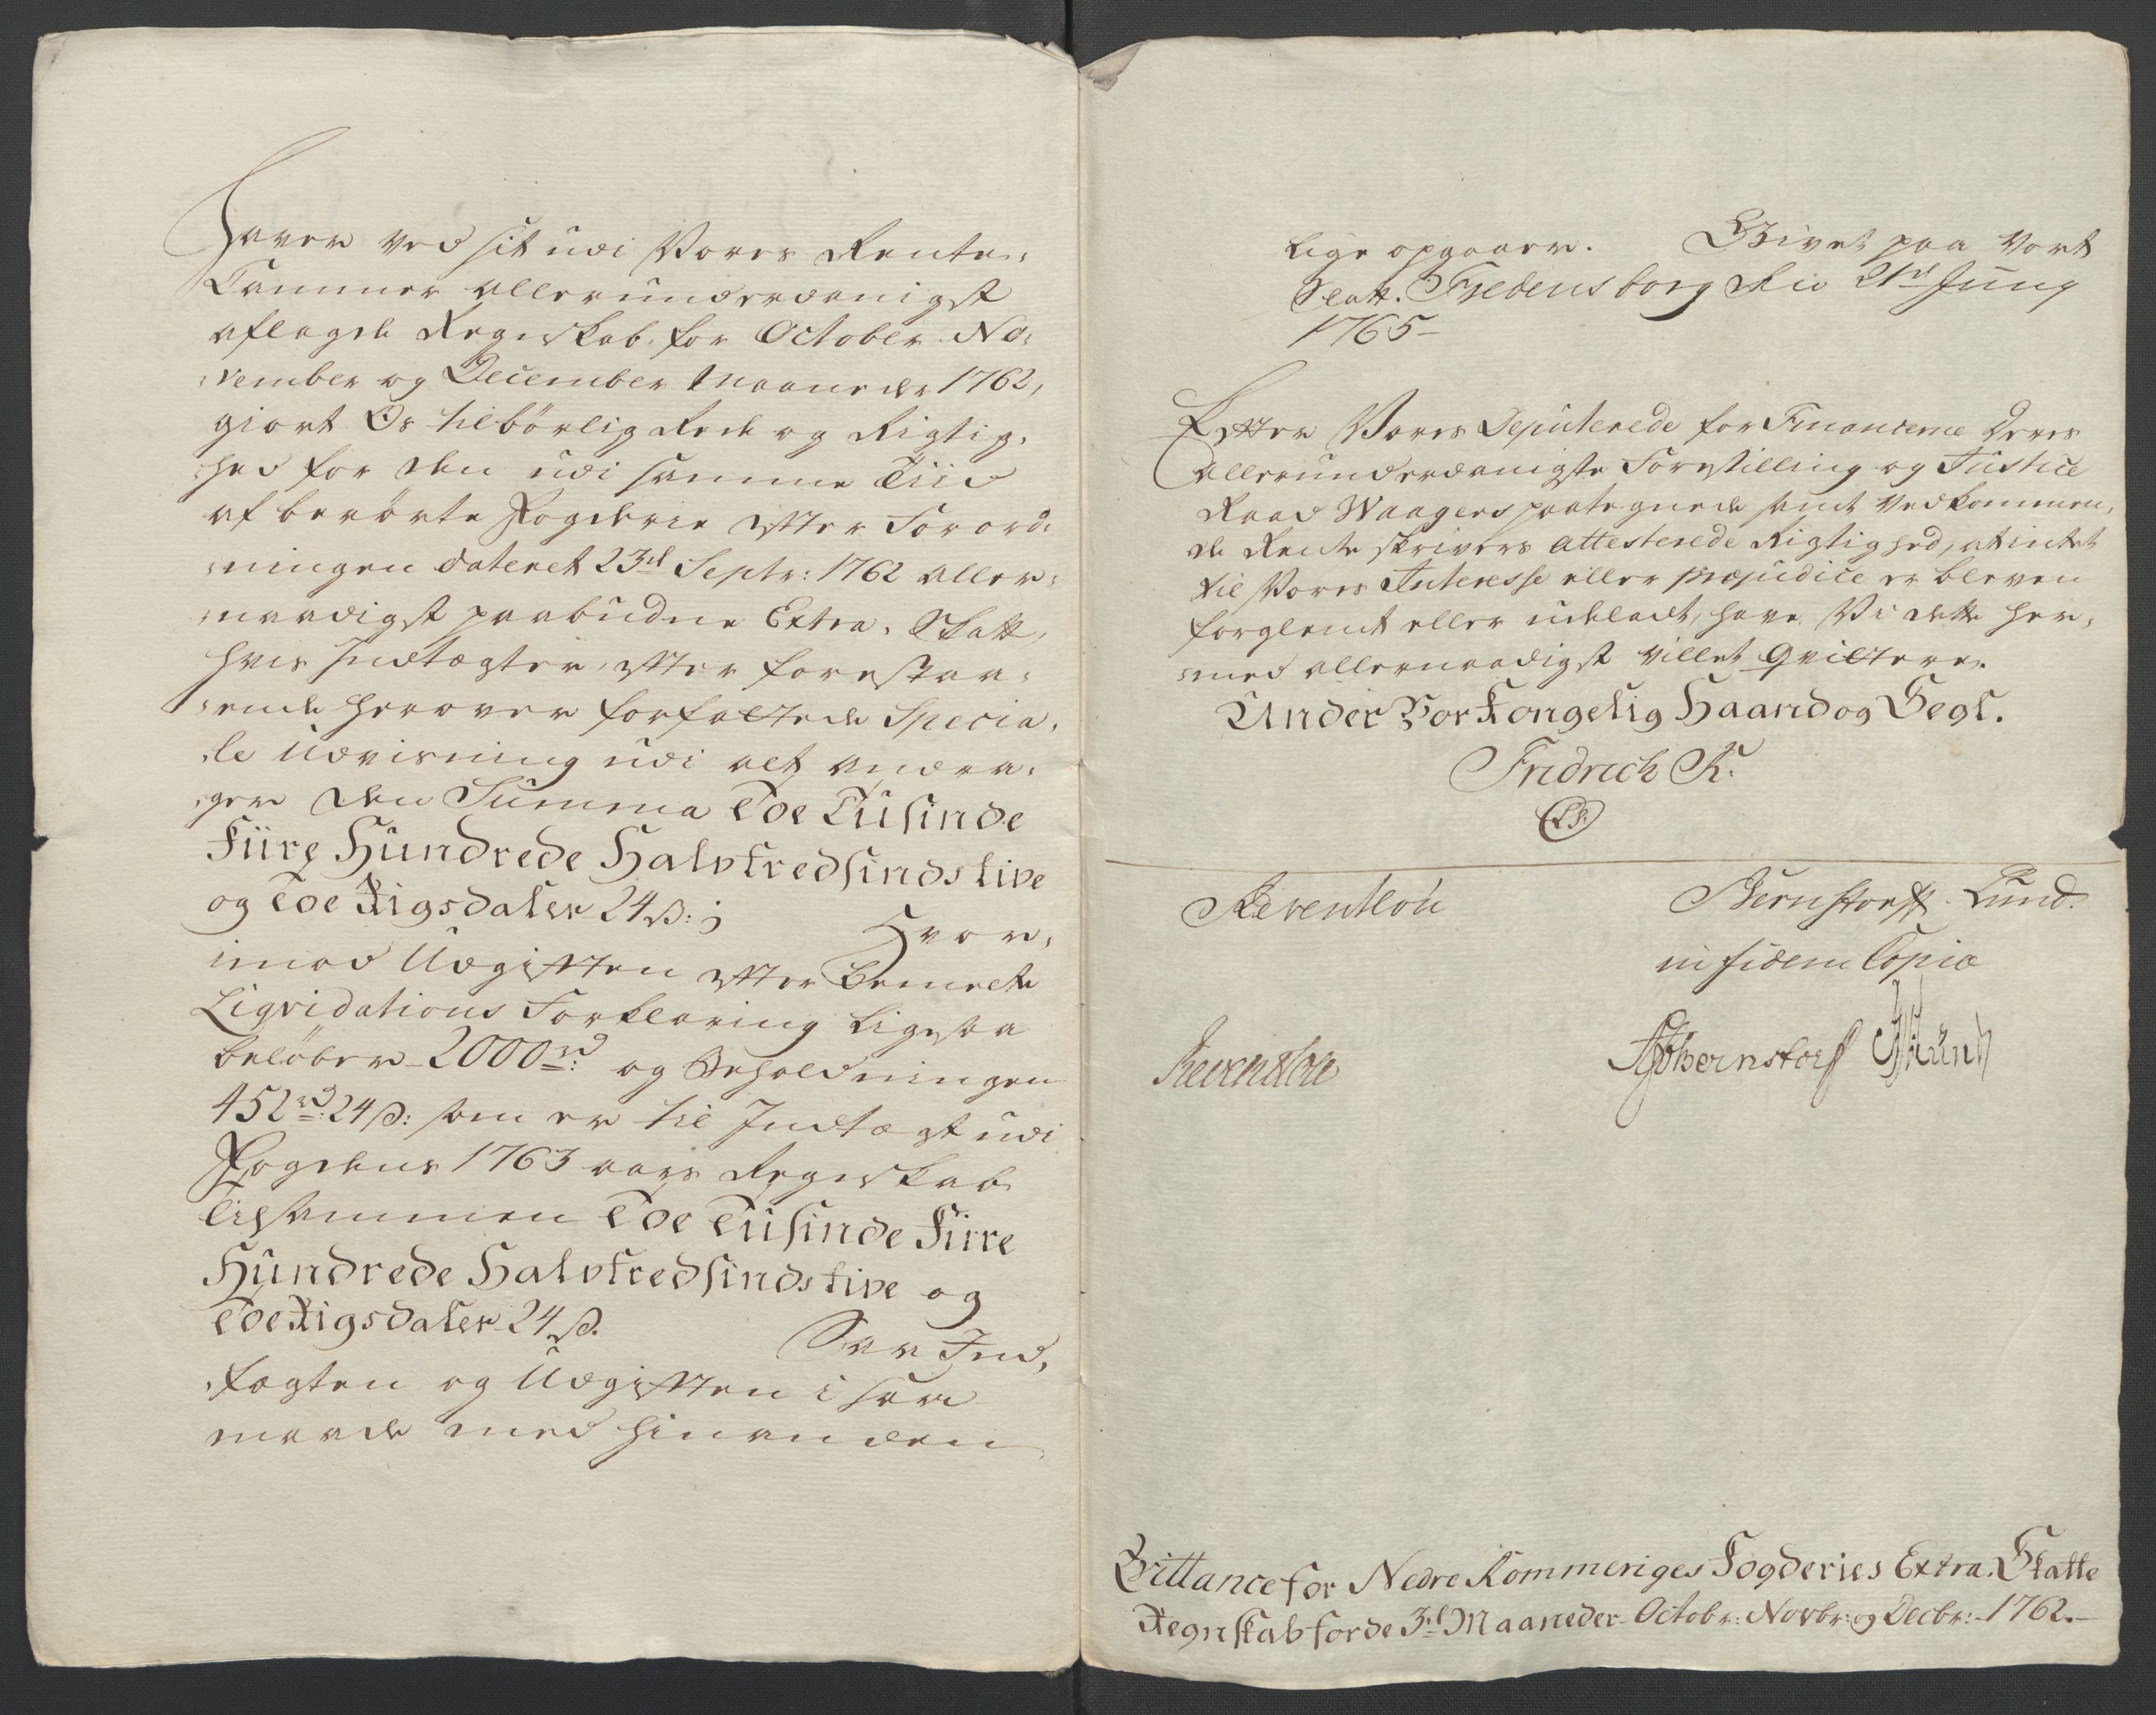 Haver ved sit udi Vores Rente-
Cammer allerunderdanigst
aflagde Regnskab, for October No-
vember og December Maaneder 1762,
giort Os tilbörlig Rede og Rigtig-
hed for den udi samme Tiid
af berörte Fogderie efter Forord-
ningen dateret 23d Septr: 1762 aller-
naadigst paabudne Extra. Skatt,
hvis Indtægter, efter forestaa-
ende herover forfattede Specia-
le Udvisning udi alt andra-
ger den Summa Toe Tusinde
Fiire Hundrede Halvtredsindstive
og Toe Rigsdaler 24 s:;
Hvor-
imod Udgiften efter bemelte
Liqvidations Forklaring ligesaa
belöber 2000 rd: og Beholdningen
452 rd: 24 s: som er til Indtægt udi
Fogdens 1763 aars Regnskab
tilsammen Toe Tusinde Fiire
Hundrede Halvtredsindstive og
Toe Rigsdaler 24 s.
Saa Ind-
tægten og Udgiften i saa
maade med hinanden
lige opgaaer. Givet paa Vort
Slott. Fredensborg den 21d Juny
1765-
Efter Vores Deputerede for Financerne Deres
allerunderdanigste Forestilling og Justice
Raad Waagers paategnede samt vedkommen-
de Renteskrivers attesterede Rigtighed, at intet
til Vores Interesse eller præjudice er bleven
forglemt eller udeladt, have Vi dette her-
med allernaadigst villet Qvittere.
Under Vor Kongelig Haand og Segl.
Fridrich R.
(LS:)
Reventlou
Bernstorff. Lund.
in fidem Copiæ
Reventlou
Bernstorff
Qvittance for Nedre Rommeriges Fogderies Extra. Skatte
Regnskab for de 3d Maaneder Octobr: Novbr: og Decbr: 1762.